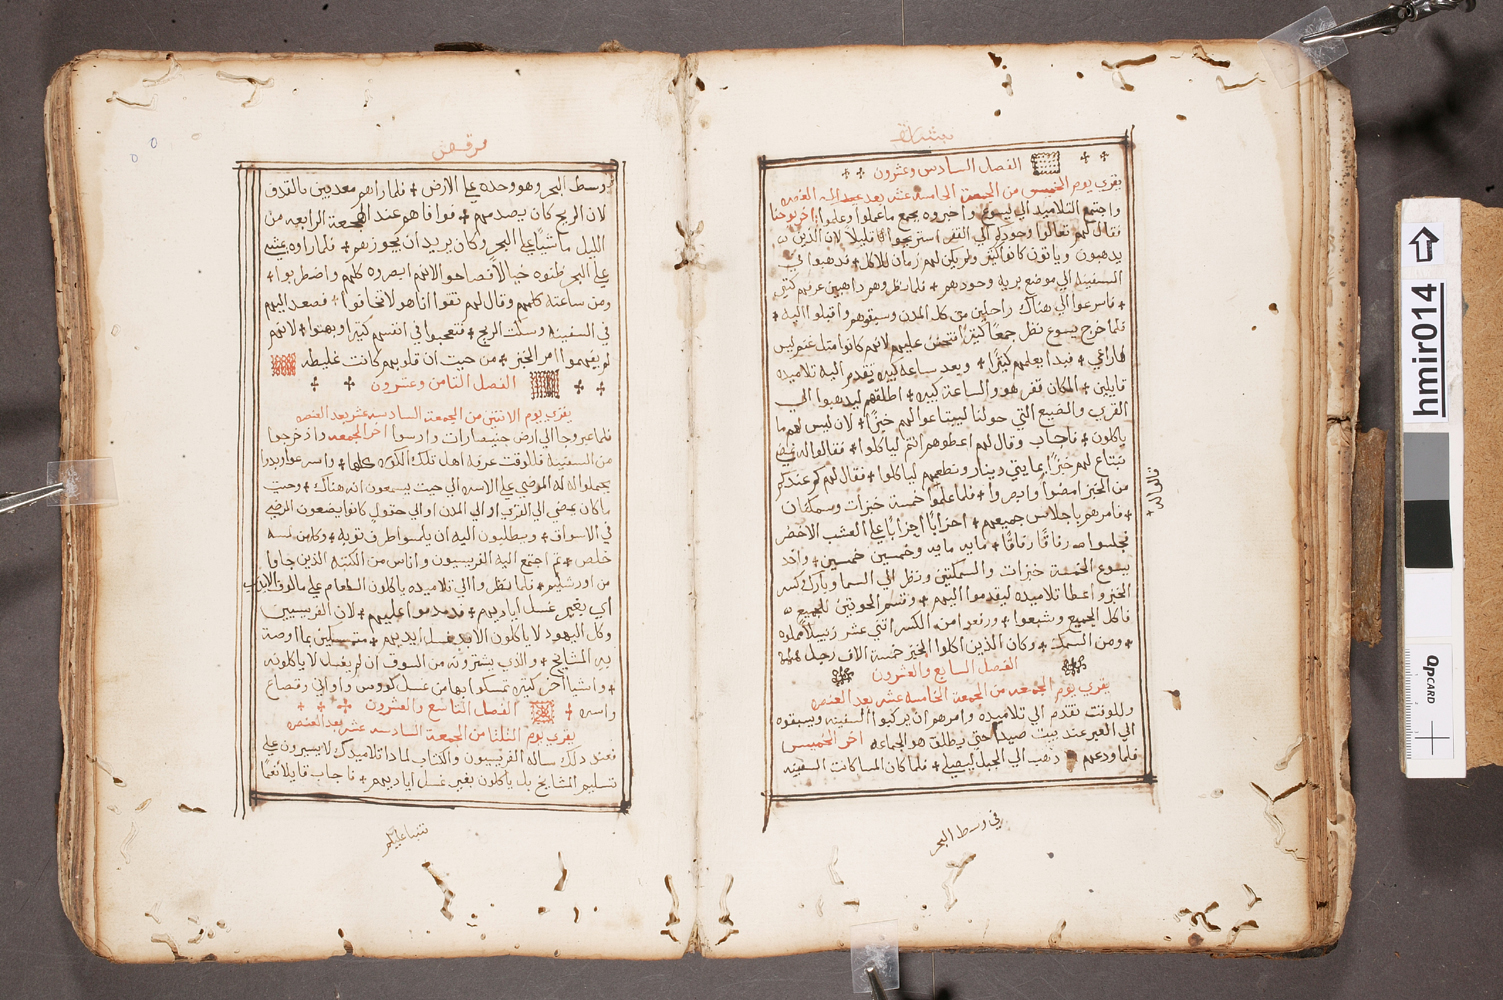 بشارة
الفصل السادس وعشرون
يقرى يوم الخميس من الجمعة الخامسه عشر بعد العنصره
واجتمع التلاميد الي يسوع واخبروه بجمع ما عملوا وعلموا
فقال لهم تعالوا وحودكم الي القفر استريحوا قليلاً لان الذين
يدهبون وياتون كانوا كثير ولم يكن لهم زمان للاكل + فدهبوا في
السفينه الي موضع بريه وحودهم + فلما نظروهم داهبين عرفهم كثير
+ فاسرعوا الي هناك راجلين من كل المدن وسبقوهم واقبلوا اليه +
فلما خرج يسوع نظر جمعاً كثيراً فتحنن عليهم لانهم كانوا مثل غنم ليس
لها راعي + فبدا يعلمهم كثيراً + وبعد ساعه كبيره تقدم اليه تلاميده
قايلين + المكان قفر هو والساعة كبيره + اطلقهم ليدهبوا الي
القري والضيع التي حولنا ليبتاعوا لهم خبزاً + لان ليس لهم ما
ياكلون + فاجاب وقال لهم اعطوهم انتم لياكلوا + فقالوا له نمضي
نبتاع لهم خبزاً بمايتي دينار ونطعمهم لياكلوا + فقال لهم كم عندكم
من الخبز امضوا وابصروا + فلما علموا خمسة خبزات وسمكتان
+ فامرهم باجلاس جميعهم + احزاباً احزاباً علي العشب الاخضر
فجلسوا رفاقاً رفاقاً + مايه مايه وخمسين خمسين + واخد
يسوع الخمسة خبزات والسمكتين ونظر الي السما وبارك وكسر
الخبز واعطا تلاميده ليقدموا اليهم + وقسم الحوتين للجميع
فاكل الجميع وشبعوا + ورفعوا من الكسر اثني عشر زنبيلاً مملوه
+ ومن السمك + وكان الذين اكلوا الخبز خمسة الاف رجل
الفصل السابع والعشرون
يقرى يوم الجمعه من الجمعة الخامسه عشر بعد العنصره
وللوقت تقدم الي تلاميده وامرهم ان يركبوا السفينه ويسبقوه
الي العبر عند بيت صيدا حتي يطلق هو الجماعه اخر الخميس
فلما ودعهم دهب الي الجبل ليصلي + فلما كان المسا كانت السفينه
في وسط البحر
مرقس
وسط البحر وهو وحده علي الارض + فلما راهم معدبين بالقدف
لان الريح كان يصدمهم + فوافاهم عند الهجعة الرابعه من
الليل ماشياً علي البحر وكان يريد ان يجوزهم + فلما راوه يمشي
علي البحر ظنوه خيالاً فصاحوا لانهم ابصروه كلهم واضطربوا +
ومن ساعته كلمهم وقال لهم تقوا انا هو لا تخافوا + فصعد اليهم
في السفينه وسكت الريح + فتعجبوا في انفسهم كثيراً وبهتوا + لانهم
لم يفهموا امر الخبز + من حيت ان قلوبهم كانت غليظه
الفصل الثامن وعشرون
يقرى يوم الاثنين من الجمعة السادسه عشر بعد العنصره
فلما عبروا جاالي ارض جنيسارات وارسوا اخر الجمعه واذ خرجوا
من السفينة فللوقت عرفه اهل تلك الكوره كلها + واسرعوا وبدوا
يحملوا له المرضي علي الاسره الي حيت يسمعون انه هناك + وحيت
ما كان يمضي الي القرى او الي المدن او الي حقول كانوا يضعون المرضي
في الاسواق + ويطلبون اليه ان يلمسوا طرف ثوبه + وكل من لمسه
خلص + ثم اجتمع اليه الفريسيون واناس من الكتبه الذين جاوا
من اورشليم + فلما نظروا الي تلاميده ياكلون الطعام علي مالوف
اي بغير غسل اياديهم + تدمدموا عليهم + لان الفريسيين
وكل اليهود لا ياكلون الا بعد غسل ايديهم + متمسكين بما اوصة
به المشايخ + والذي يشترونه من السوف ان لم يغسل لا ياكلونه
+ واشيا اخر كثيره تمسكوا بها من غسل كووس واواني وقصاع
واسره + الفصل التاسع والعشرون
يقرى يوم الثلثا من الجمعة السادسه عشر بعد العنصره
فعند دلك ساله الفريسيون والكتاب لمادا تلاميدك لا يسيرون علي
تسليم المشايخ بل ياكلون بغير غسل اياديهم + فاجاب قايلاً نعما
تنبا عليكم